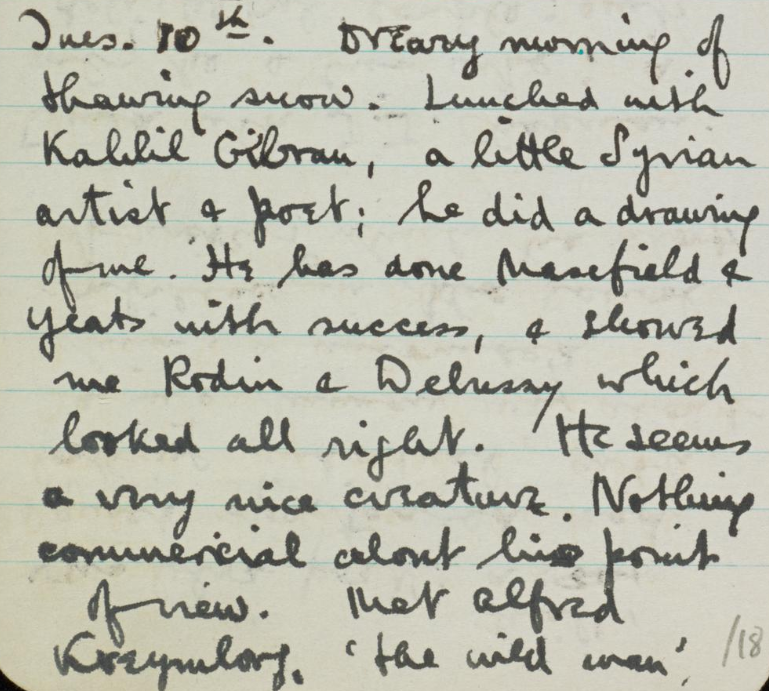 Tues. 10th. Dreary morning of
thawing snow. Lunched with
Kahlil Gibran, a little Syrian
artist & poet; he did a drawing
of me. He has done Masefield &
Yeats with success, & showed
me Rodin & Debussy which
looked all right. He seems
a very nice creature. Nothing
commercial about his point
of view. Met Alfred
Kreymborg, 'the wild man'.
/18